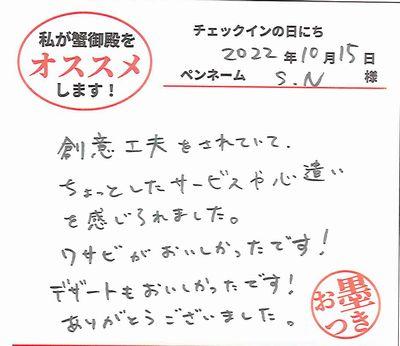 私が蟹御殿を
オススメ
します！
チェックインの日にち
2022年10月15日
ペンネーム S.N 様
創意工夫をされていて、
ちょっとしたサービスや心遣い
を感じられました。
ワサビがおいしかったです！
デザートもおいしかったです！
ありがとうございました。
お墨つき